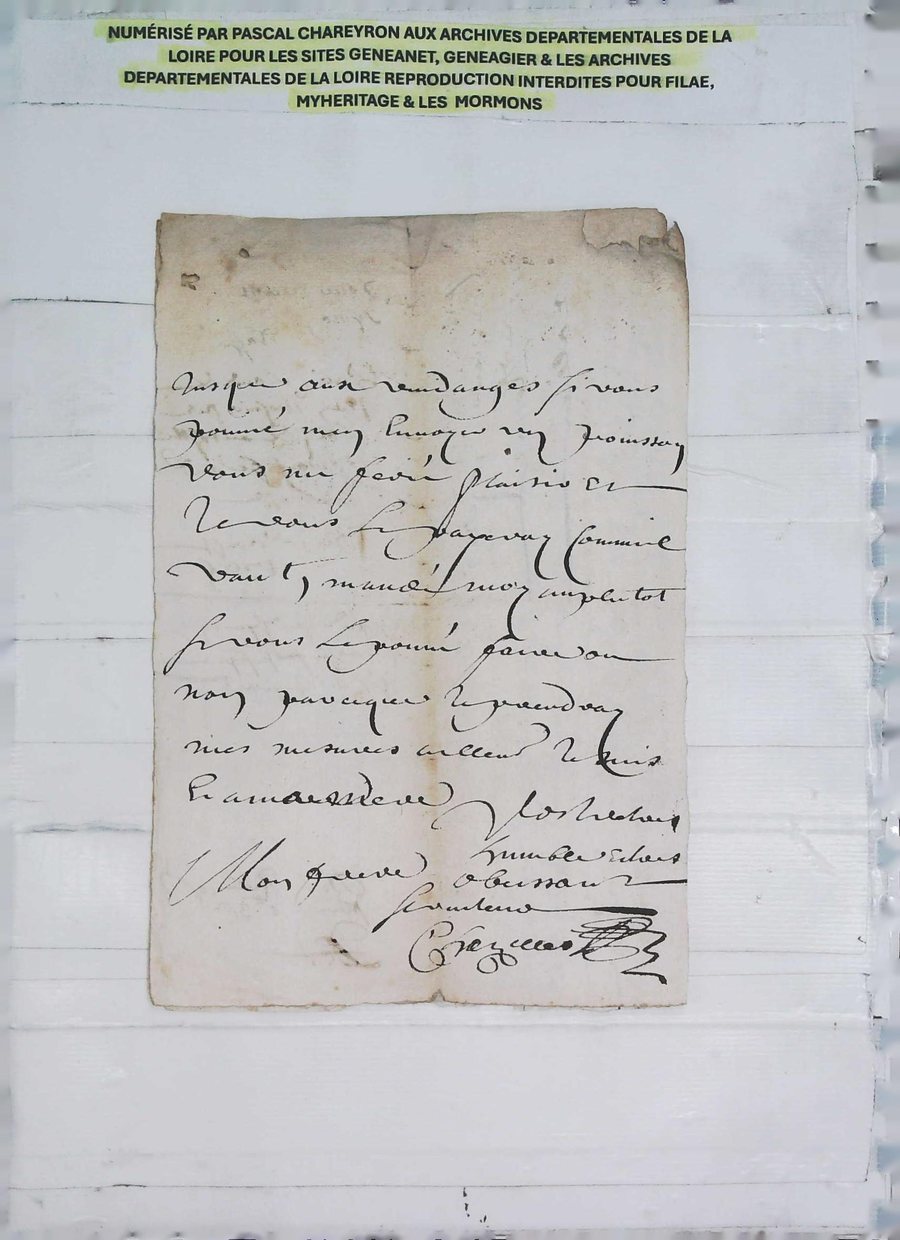 NUMÉRISÉ PAR PASCAL CHAREYRON AUX ARCHIVES DEPARTEMENTALES DE LA
LOIRE POUR LES SITES GENEANET, GENEAGIER & LES ARCHIVES
DEPARTEMENTALES DE LA LOIRE REPRODUCTION INTERDITES POUR FILAE,
MYHERITAGE & LES MORMONS
Jusque aux vendanges si vous
pouvié men envoyer un poinsson
vous me ferié plaisir et
Je vous le payeray comme il
vaut, mandé moy au plutot
si vous le pouvié faire ou
non parceque Je prendray
mes mesures ailleur Je suis
Vostre tres
humble et tres
Mon frere obeissant
serviteur